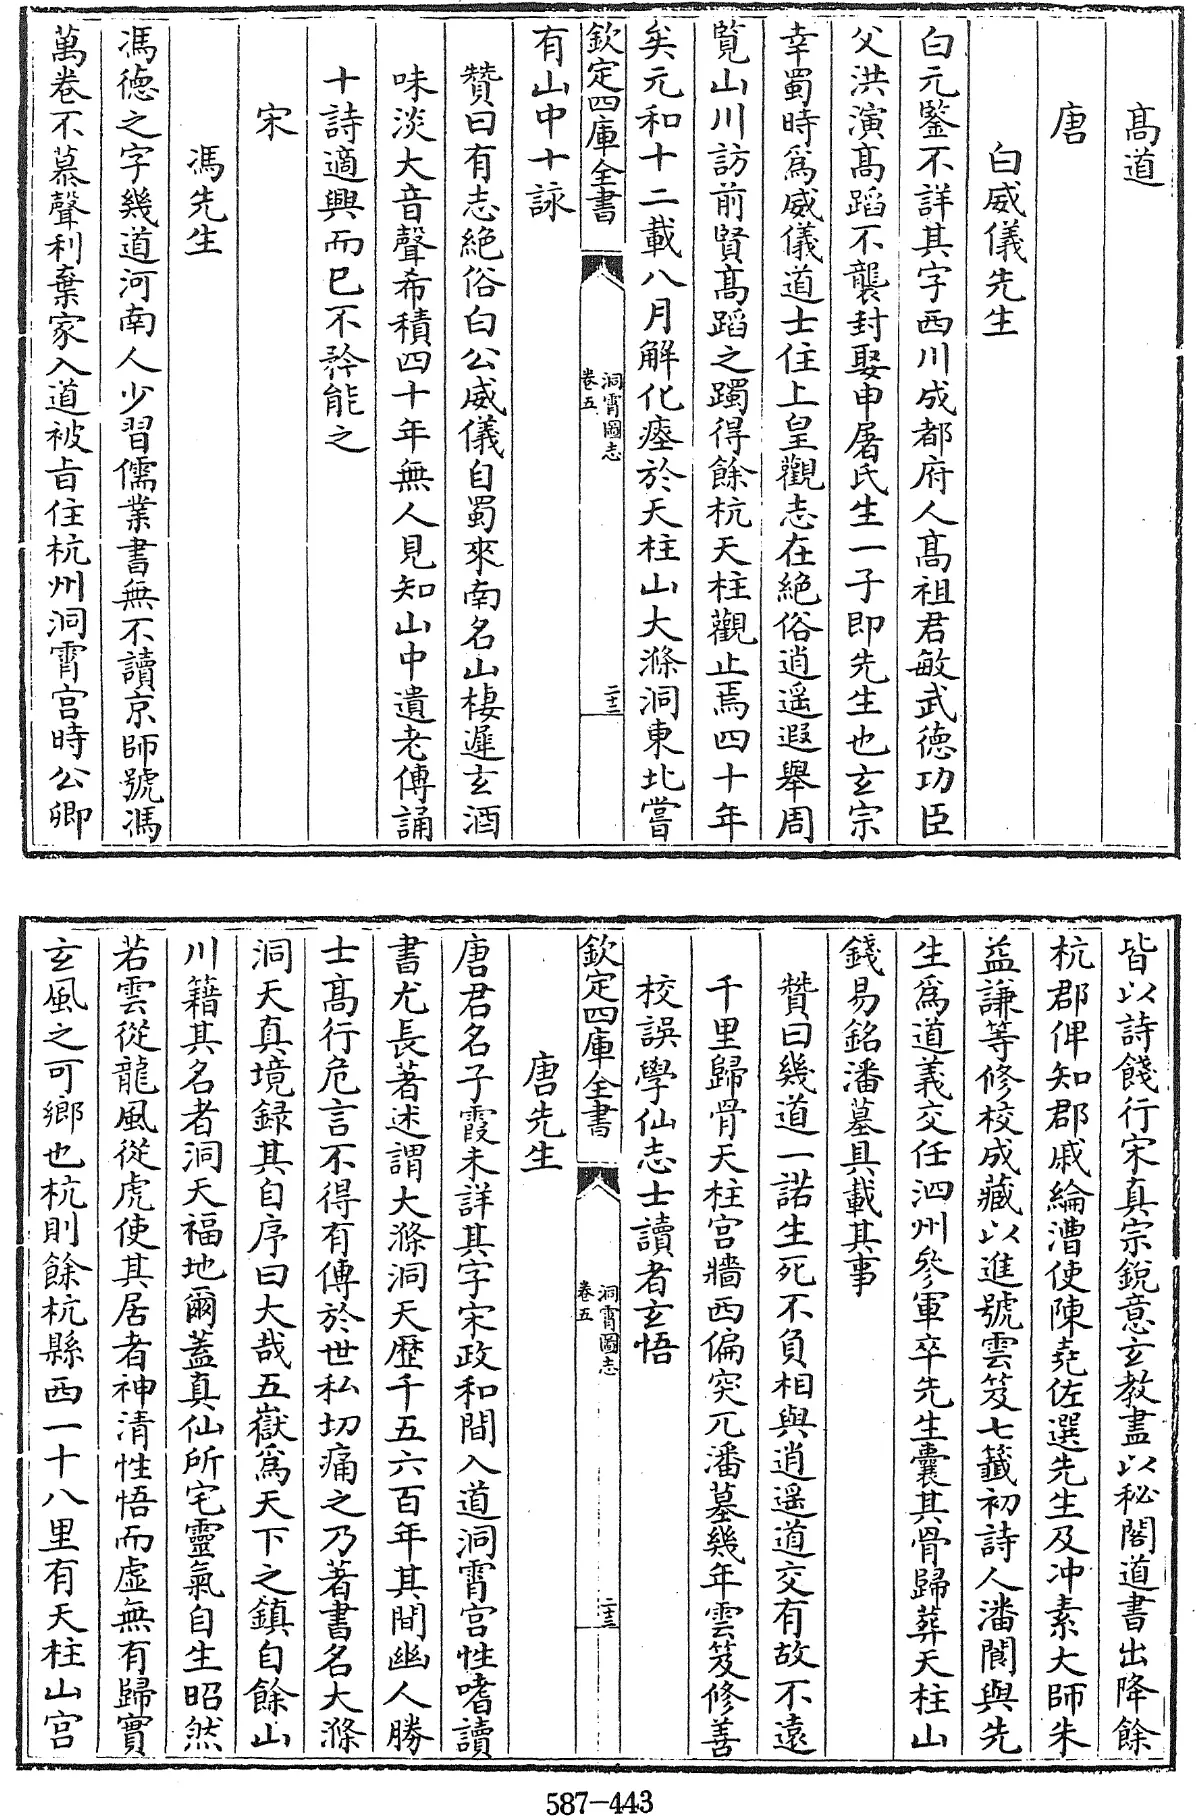 高道
唐
白威儀先生
白元鑒不詳其字西川成都府人高祖君敏武德功臣
父洪演高蹈不襲封娶申屠氏生一子即先生也玄宗
幸蜀時為威儀道士住上皇觀志在絶俗逍遥遐舉周
覽山川訪前賢高蹈之躅得餘杭天柱觀止焉四十年
矣元和十二載八月解化瘞於天柱山大滌洞東北嘗
欽定四庫全書
洞霄圖志
卷五
二十二
有山中十詠
贊曰有志絶俗白公威儀自蜀來南名山棲遲玄酒
味淡大音聲希積四十年無人見知山中遺老傳誦
十詩適興而已不矜能之
宋
馮先生
馮德之字幾道河南人少習儒業書無不讀京師號馮
萬卷不慕聲利棄家入道被㫖住杭州洞霄宮時公卿
皆以詩餞行宋真宗銳意玄教盡以秘閣道書出降餘
杭郡俾知郡戚綸漕使陳堯佐選先生及冲素大師朱
益謙等修校成藏以進號雲笈七籖初詩人潘閬與先
生為道義交任泗州參軍卒先生囊其骨歸葬天柱山
錢易銘潘墓具載其事
贊曰幾道一諾生死不負相與逍遥道交有故不遠
千里歸骨天柱宮牆西偏突兀潘墓幾年雲笈修善
校誤學仙志士讀者玄悟
欽定四庫全書
洞霄圖志
卷五
二十三
唐先生
唐君名子霞未詳其字宋政和間入道洞霄宮性嗜讀
書尤長著述謂大滌洞天歷千五六百年其間幽人勝
士高行危言不得有傳於世私切痛之乃著書名大滌
洞天真境録其自序曰大哉五嶽為天下之鎮自餘山
川籍其名者洞天福地爾蓋真仙所宅靈氣自生昭然
若雲從龍風從虎使其居者神清性悟而虛無有歸實
玄風之可鄉也杭則餘杭縣西一十八里有天柱山宮
587-443